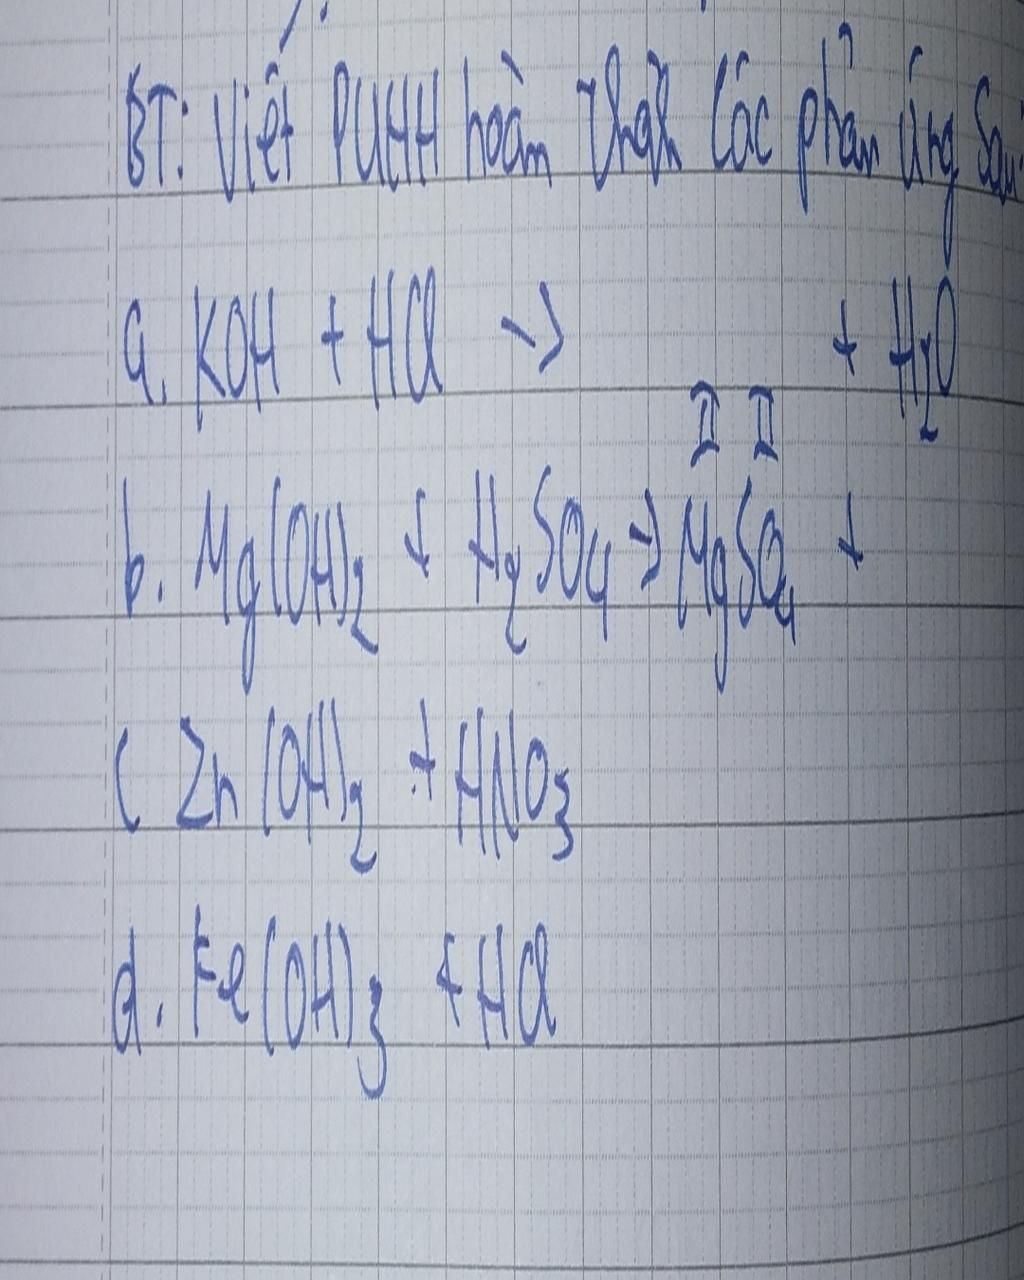 BT: Viết PUHH hoàn thành các phản ứng sau:
a. KOH + HCl → + H₂O
II II
b. Mg(OH)₂ + H₂SO₄ → MgSO₄ +
c Zn(OH)₂ + HNO₃
d. Fe(OH)₃ + HCl